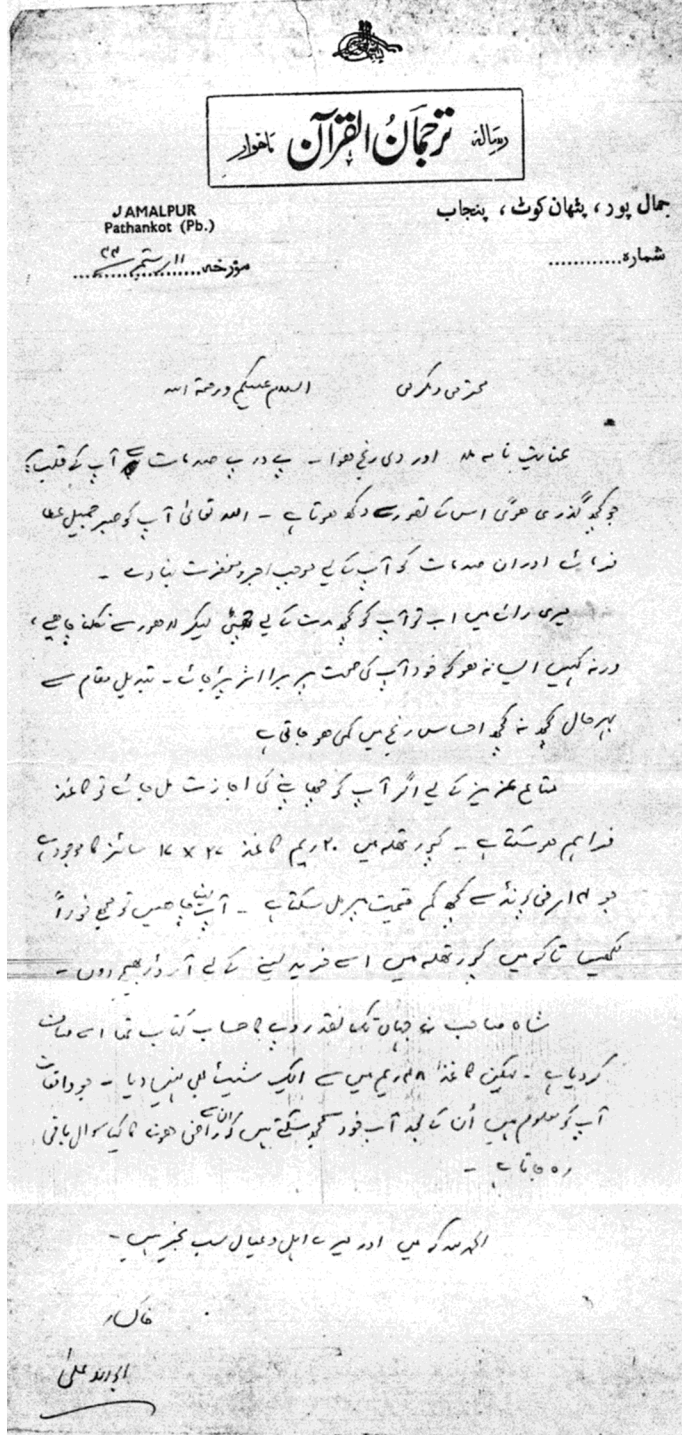 رسالہ ترجمانُ القرآن ماہوار
جمال پور، پٹھان کوٹ، پنجاب
JAMALPUR
Pathankot (Pb.)
شمارہ............
مؤرخہ ۱۱ ستمبر ۴۴ء
محترمی و مکرمی السلام علیکم ورحمۃ اللہ
عنایت نامہ ملا اور دلی رنج ہوا۔ پے در پے صدمات سے آپ کے قلب پر
جو کچھ گذری ہوگی اس کے تصور سے دکھ ہوتا ہے۔ اللہ تعالیٰ آپ کو صبر جمیل عطا
فرمائے اور ان صدمات کو آپ کے لیے موجب اجر و مغفرت بنا دے۔
میری رائے میں اب تو آپ کو کچھ مدت کے لیے چھٹی لیکر لاہور سے نکلنا چاہیے،
ورنہ کہیں ایسا نہ ہو کہ خود آپ کی صحت پر برا اثر پڑ جائے۔ تبدیل مقام سے
بہرحال کچھ نہ کچھ احساس رنج میں کمی ہو جاتی ہے
متاع عزیز کے لیے اگر آپ کو چھاپنے کی اجازت مل جائے تو کاغذ
فراہم ہو سکتا ہے۔ کپورتھلہ میں ۲۰ ریم کاغذ ۲۷ × ۱۷ سائز کا موجود ہے
جو فی پونڈ سے کچھ کم قیمت پر مل سکتا ہے۔ آپ لینا چاہیں تو مجھے فوراً
لکھیں تاکہ میں کپورتھلہ میں اسے خرید لینے کے لیے آرڈر بھیج دوں۔
شاہ صاحب نے جہاں تک نقد روپے کا حساب کتاب تھا اسے صاف
کر دیا ہے۔ لیکن کاغذ کے ریم میں سے ایک شیٹ بھی نہیں دیا۔ جو واقعات
آپ کو معلوم ہیں اُن کے بعد آپ خود سمجھ سکتے ہیں کہ ان سے راضی ہونے کا کیا سوال باقی
رہ جاتا ہے۔
الحمدللہ کہ میں اور میرے اہل و عیال سب بخیر ہیں۔
خاکسار
ابوالاعلیٰ